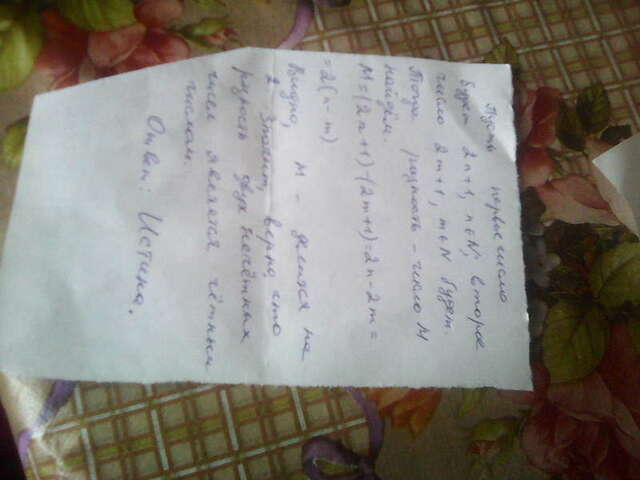 Пусть первое число
будет 2n+1, n∈N, второе
число 2m+1, m∈N будет.
Тогда разность - число M
найдём.
M=(2n+1)-(2m+1)=2n-2m=
=2(n-m)
Видно, M - делится на
2 Значит, верно, что
разность двух нечётных
чисел является чётным
числом.
Ответ: Истина.